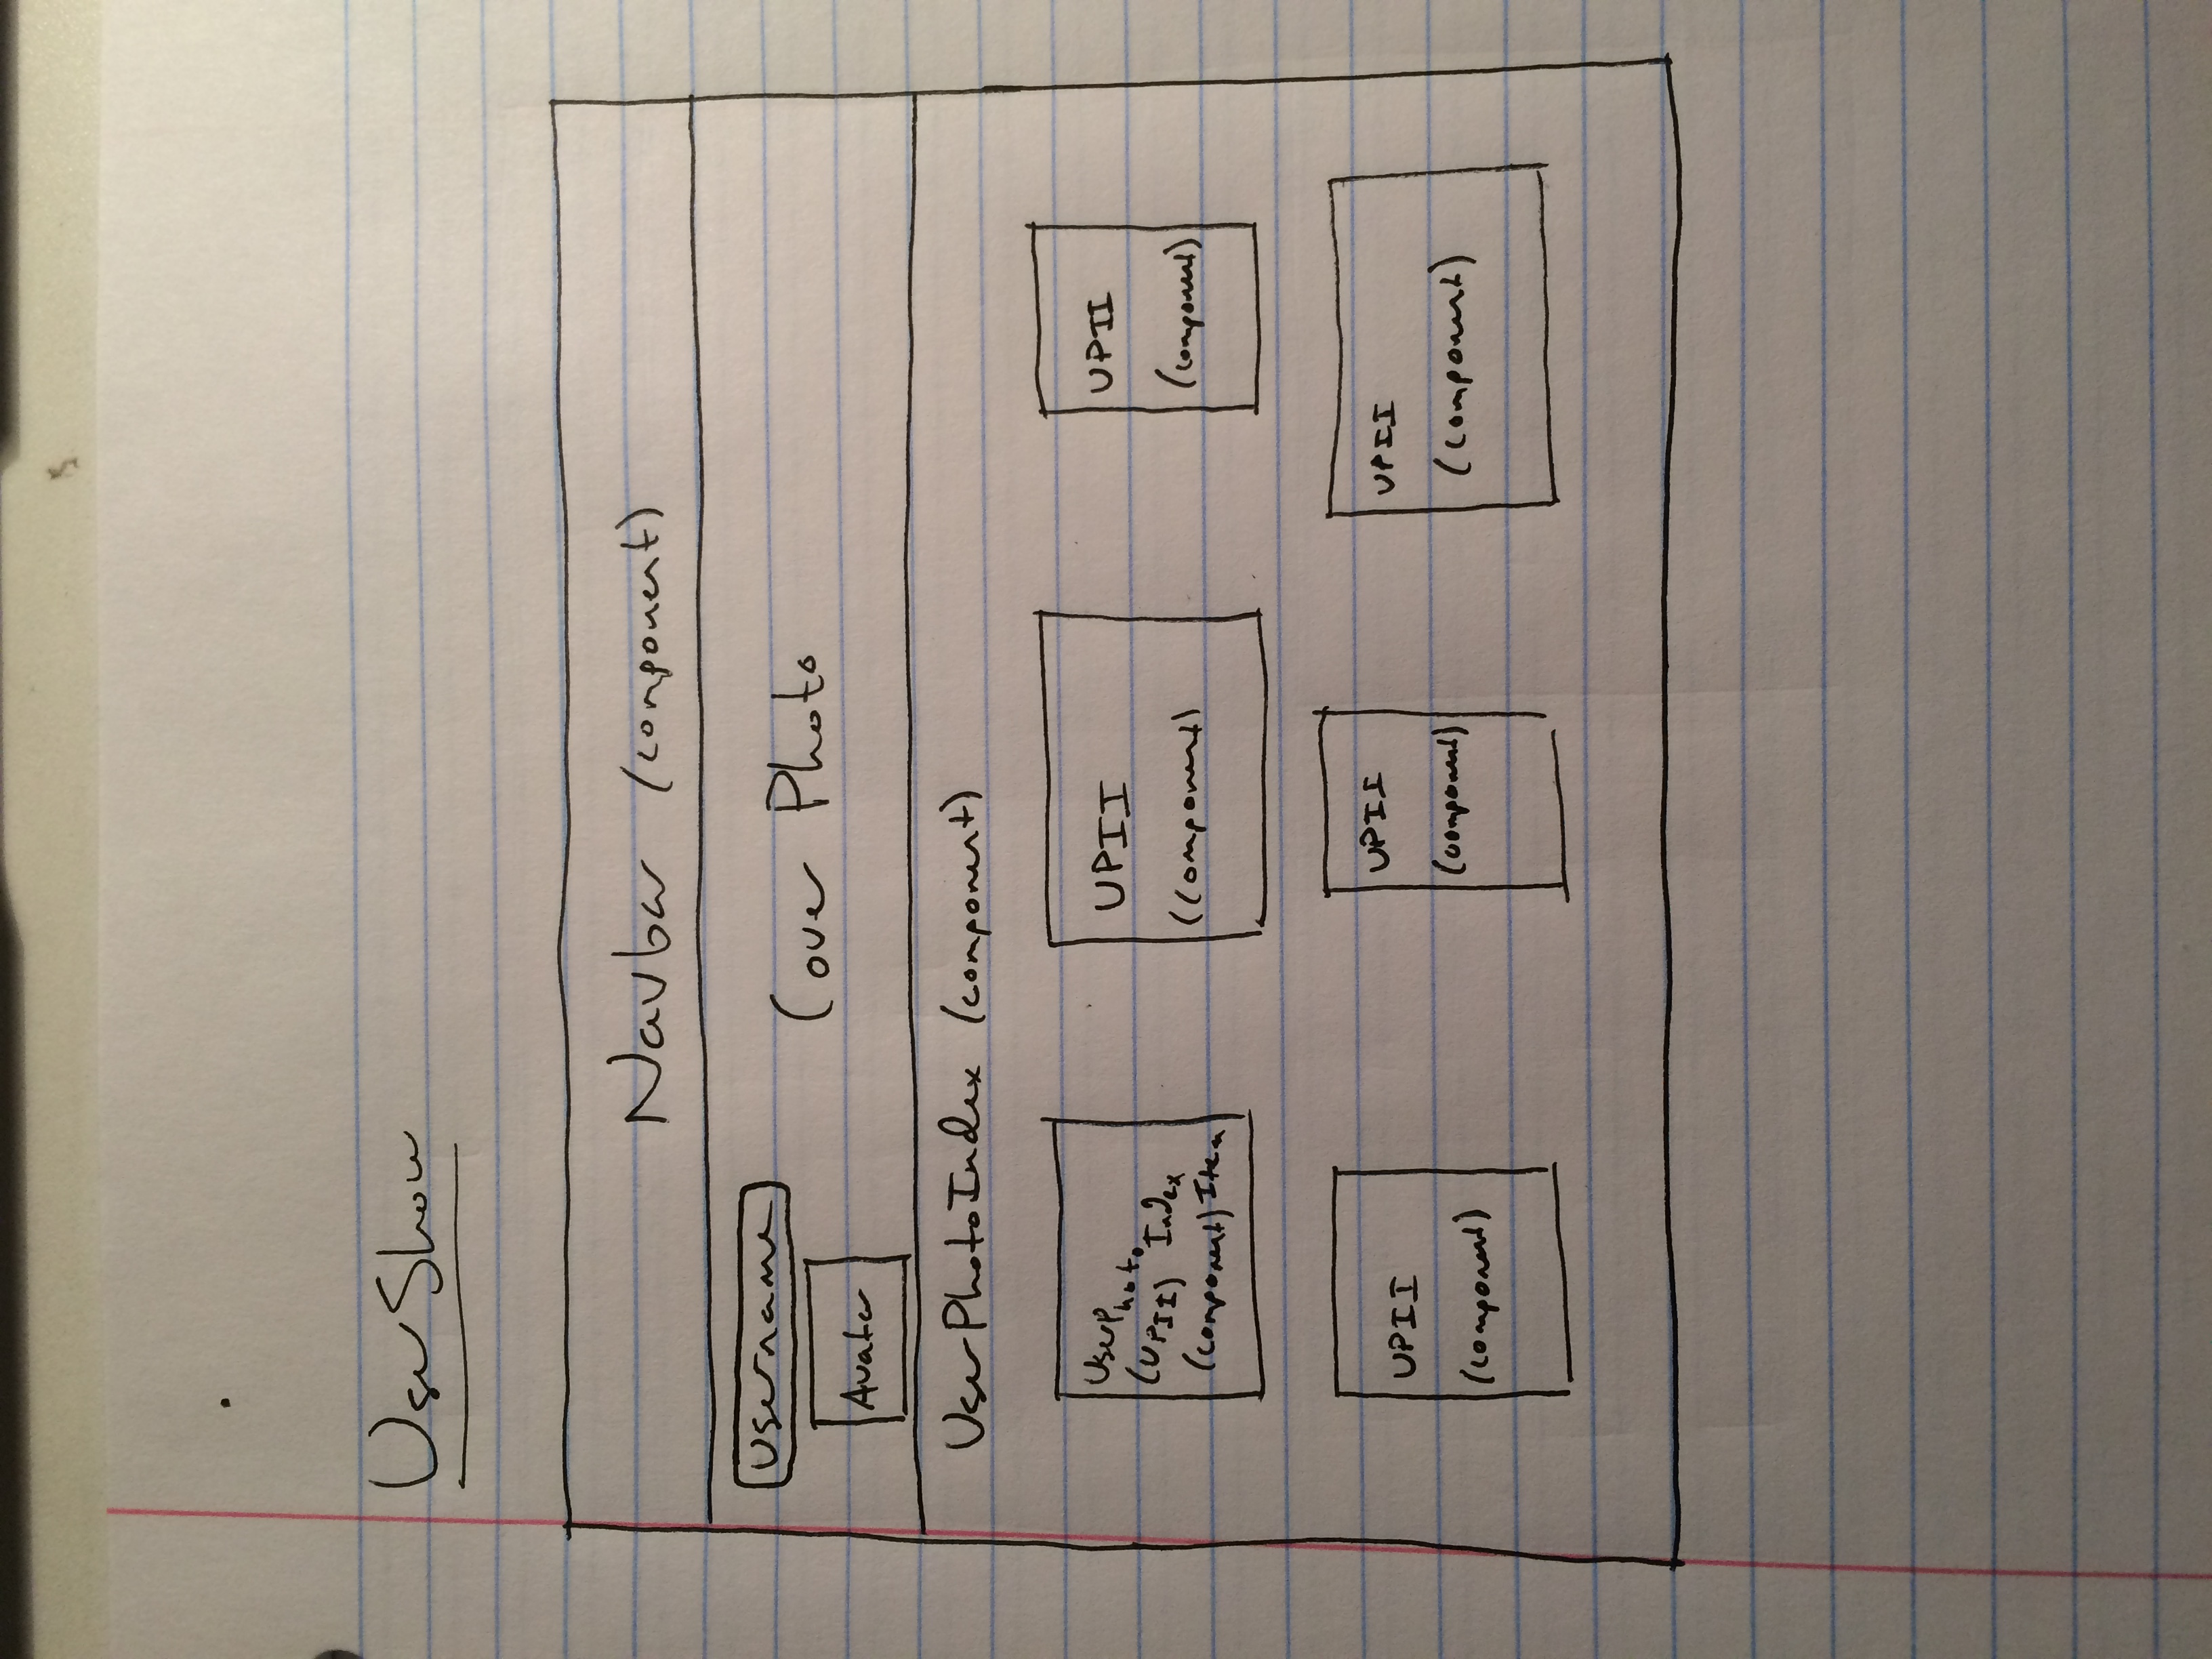 UserShow
Navbar (component)
Username
Cover Photo
Avatar
UserPhotoIndex (component)
UserPhoto
(UPII) Index
(component) Item
UPII
(component)
UPII
(component)
UPII
(component)
UPII
(component)
UPII
(component)